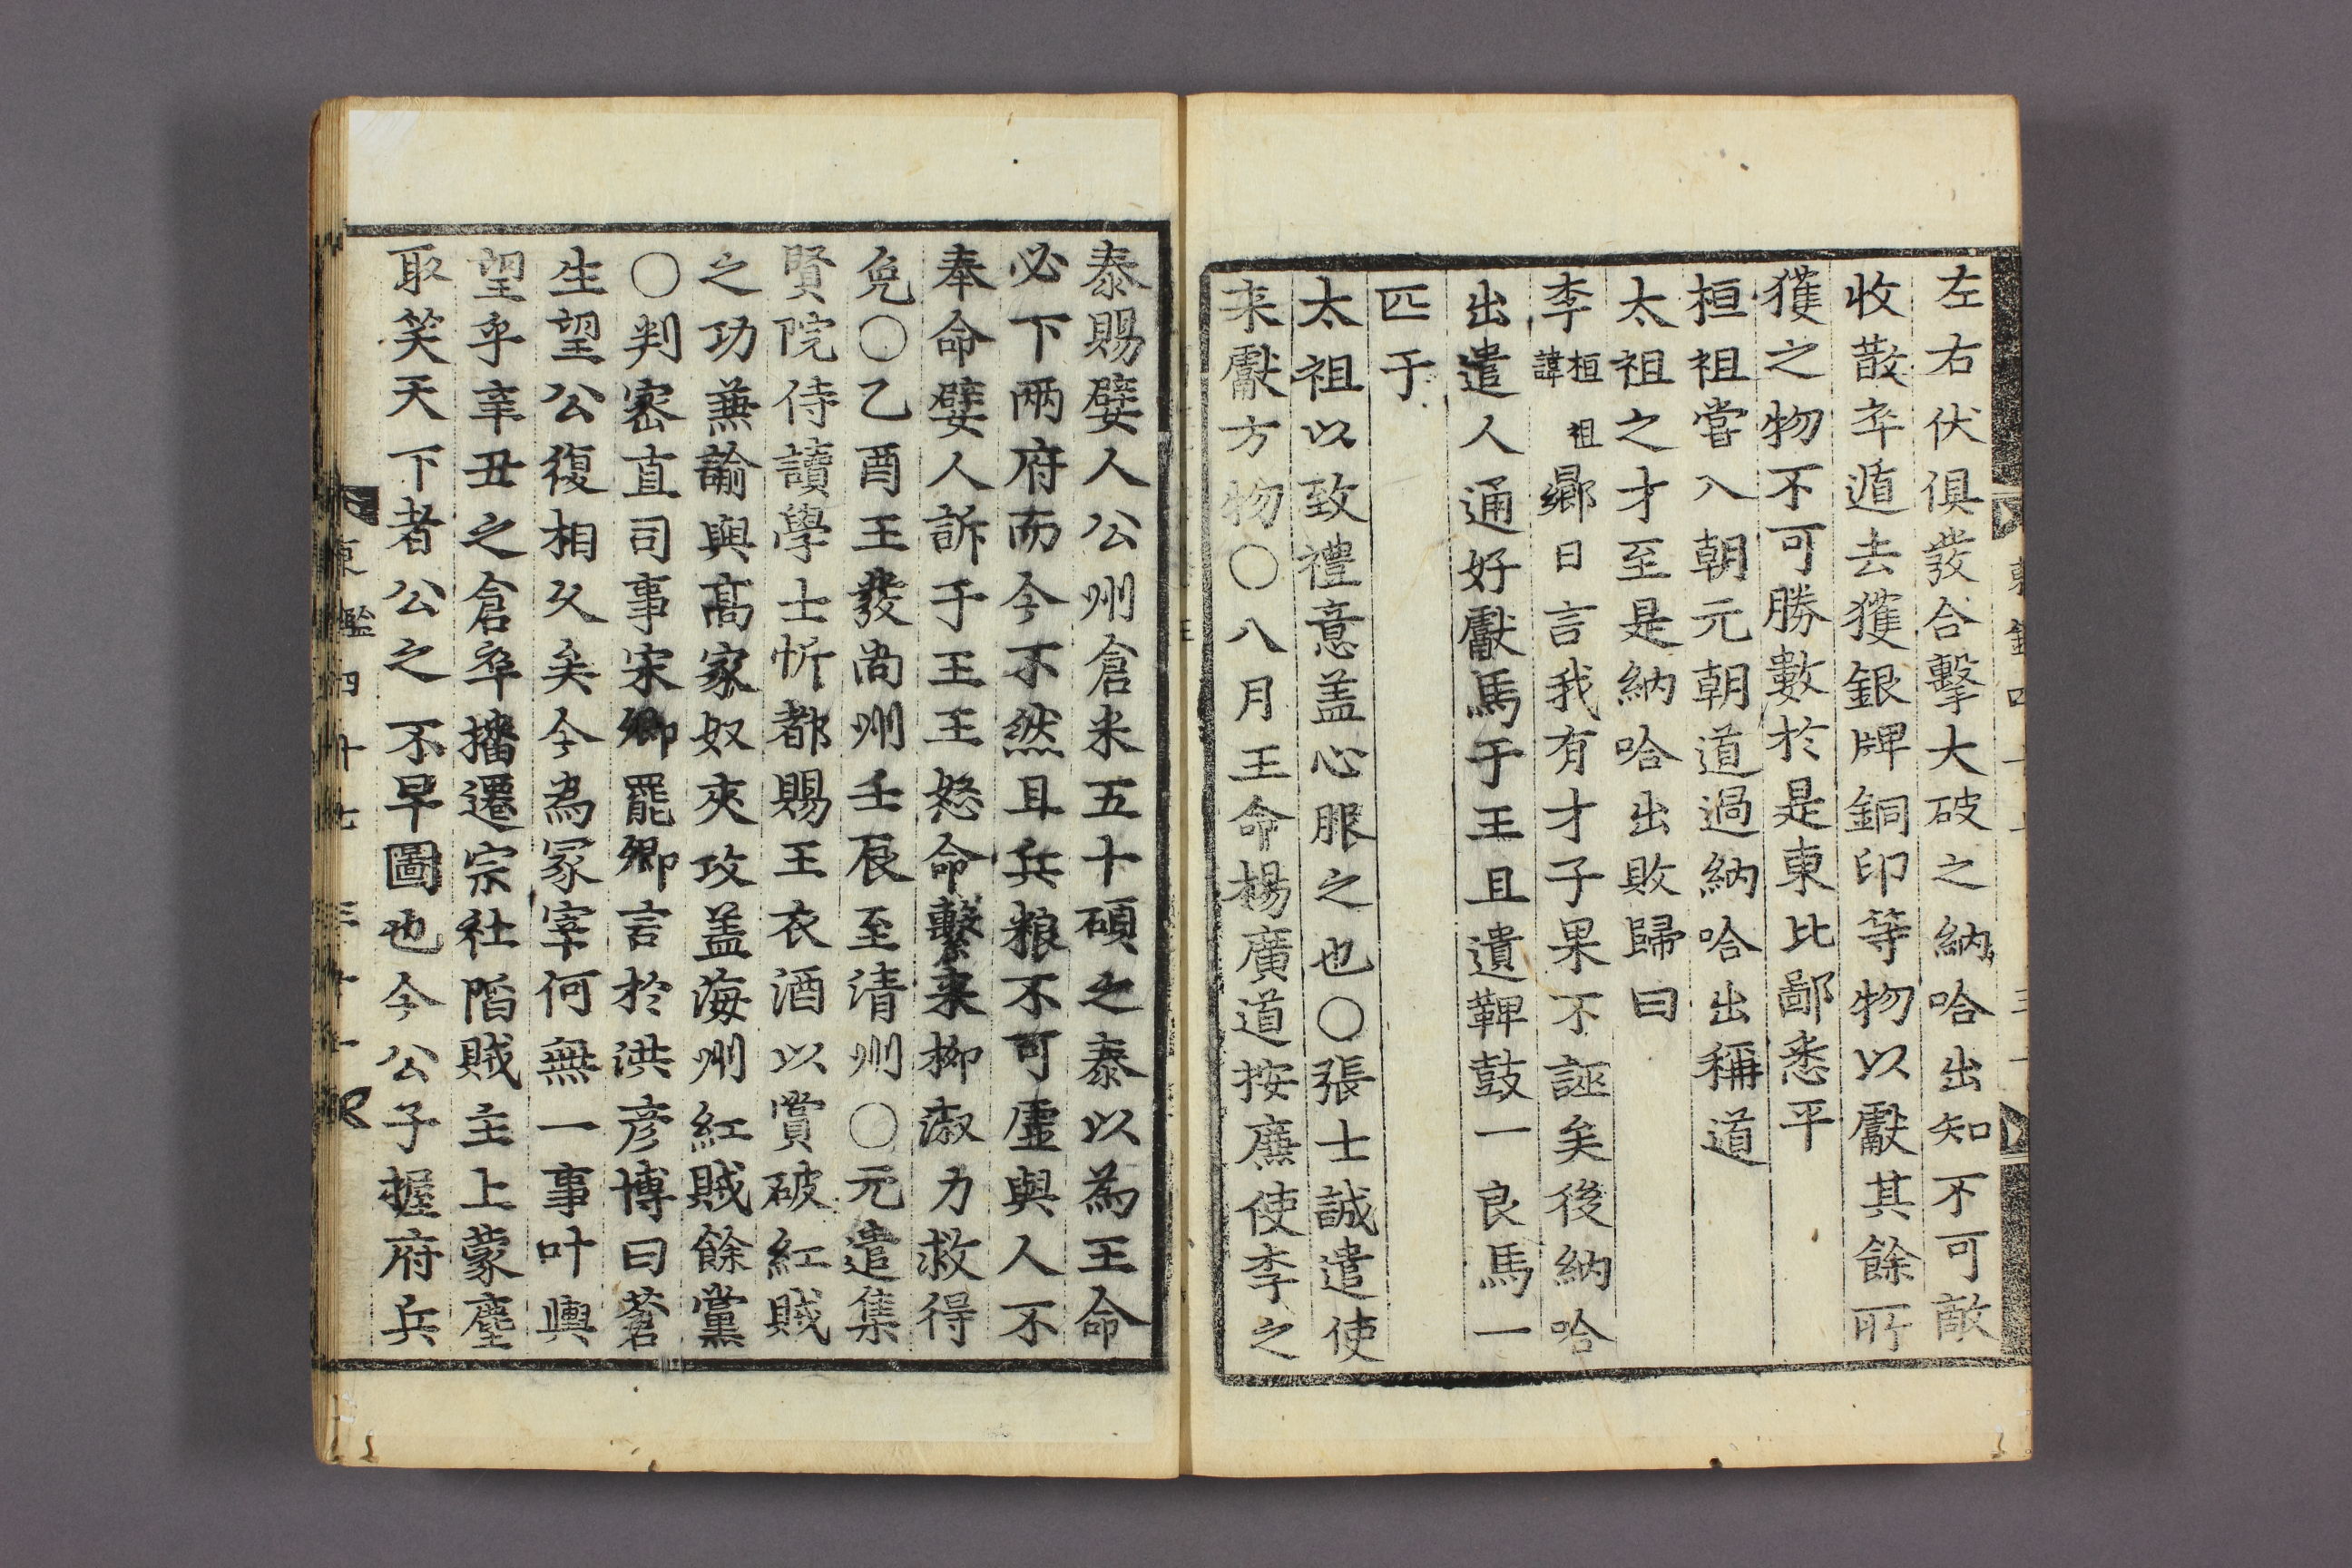 左右伏俱發合擊大破之納哈出知不可敵
收散卒遁去獲銀牌銅印等物以獻其餘所
獲之物不可勝數於是東北鄙悉平
桓祖嘗入朝元朝道過納哈出稱道
太祖之才至是納哈出敗歸曰
李桓祖諱鄉日言我有才子果不誣矣後納哈
出遣人通好獻馬于王且遺鞞鼓一良馬一
匹于
太祖以致禮意盖心服之也○張士誠遣使
来獻方物○八月王命楊廣道按廉使李之
泰賜嬖人公州倉米五十碩之泰以為王命
必下兩府而今不然且兵粮不可虛與人不
奉命嬖人訴于王王怒命繫来柳淑力救得
免○乙酉王發尚州壬辰至清州○元遣集
賢院侍讀學士忻都賜王衣酒以賞破紅賊
之功兼諭與髙家奴夾攻盖海州紅賊餘黨
○判密直司事宋卿罷卿言於洪彦博曰蒼
生望公復相久矣今為冢宰何無一事叶輿
望乎辛丑之倉卒播遷宗社陷賊主上蒙塵
取笑天下者公之不早圖也今公子握府兵
東鑑四十七 三十一